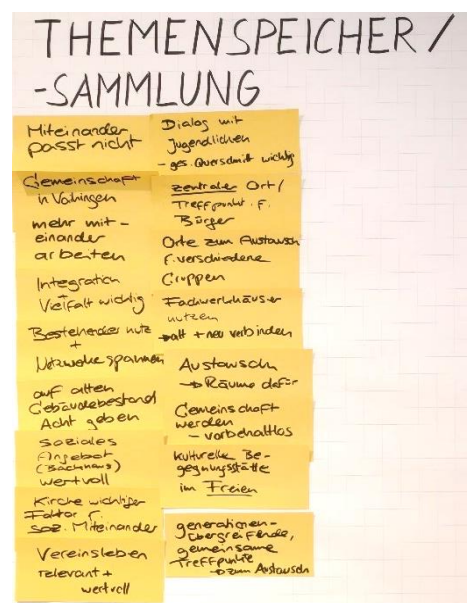 THEMENSPEICHER /
-SAMMLUNG
Miteinander
passt nicht
Gemeinschaft
in Vaihingen
mehr mit-
einander
arbeiten
Integration
Vielfalt wichtig
+
Netzwerke spannen
auf alten
Gebäudebestand
Acht geben
soziales
Angebot
(Backhaus)
wertvoll
Kirche wichtiger
Faktor f.
soz. Miteinander
Vereinsleben
relevant +
wertvoll
Dialog mit
Jugendlichen
- ges. Querschnitt wichtig
zentraler Ort /
Treffpunkt f.
Bürger
Orte zum Austausch
f. verschiedene
Gruppen
Fachwerkhäuser
nutzen
→ alt + neu verbinden
Austausch
→ Räume dafür
Gemeinschaft
werden
- vorbehaltlos
kulturelle Be-
gegnungsstätte
im Freien
generationen-
übergreifende,
gemeinsame
Treffpunkte
→ zum Austausch